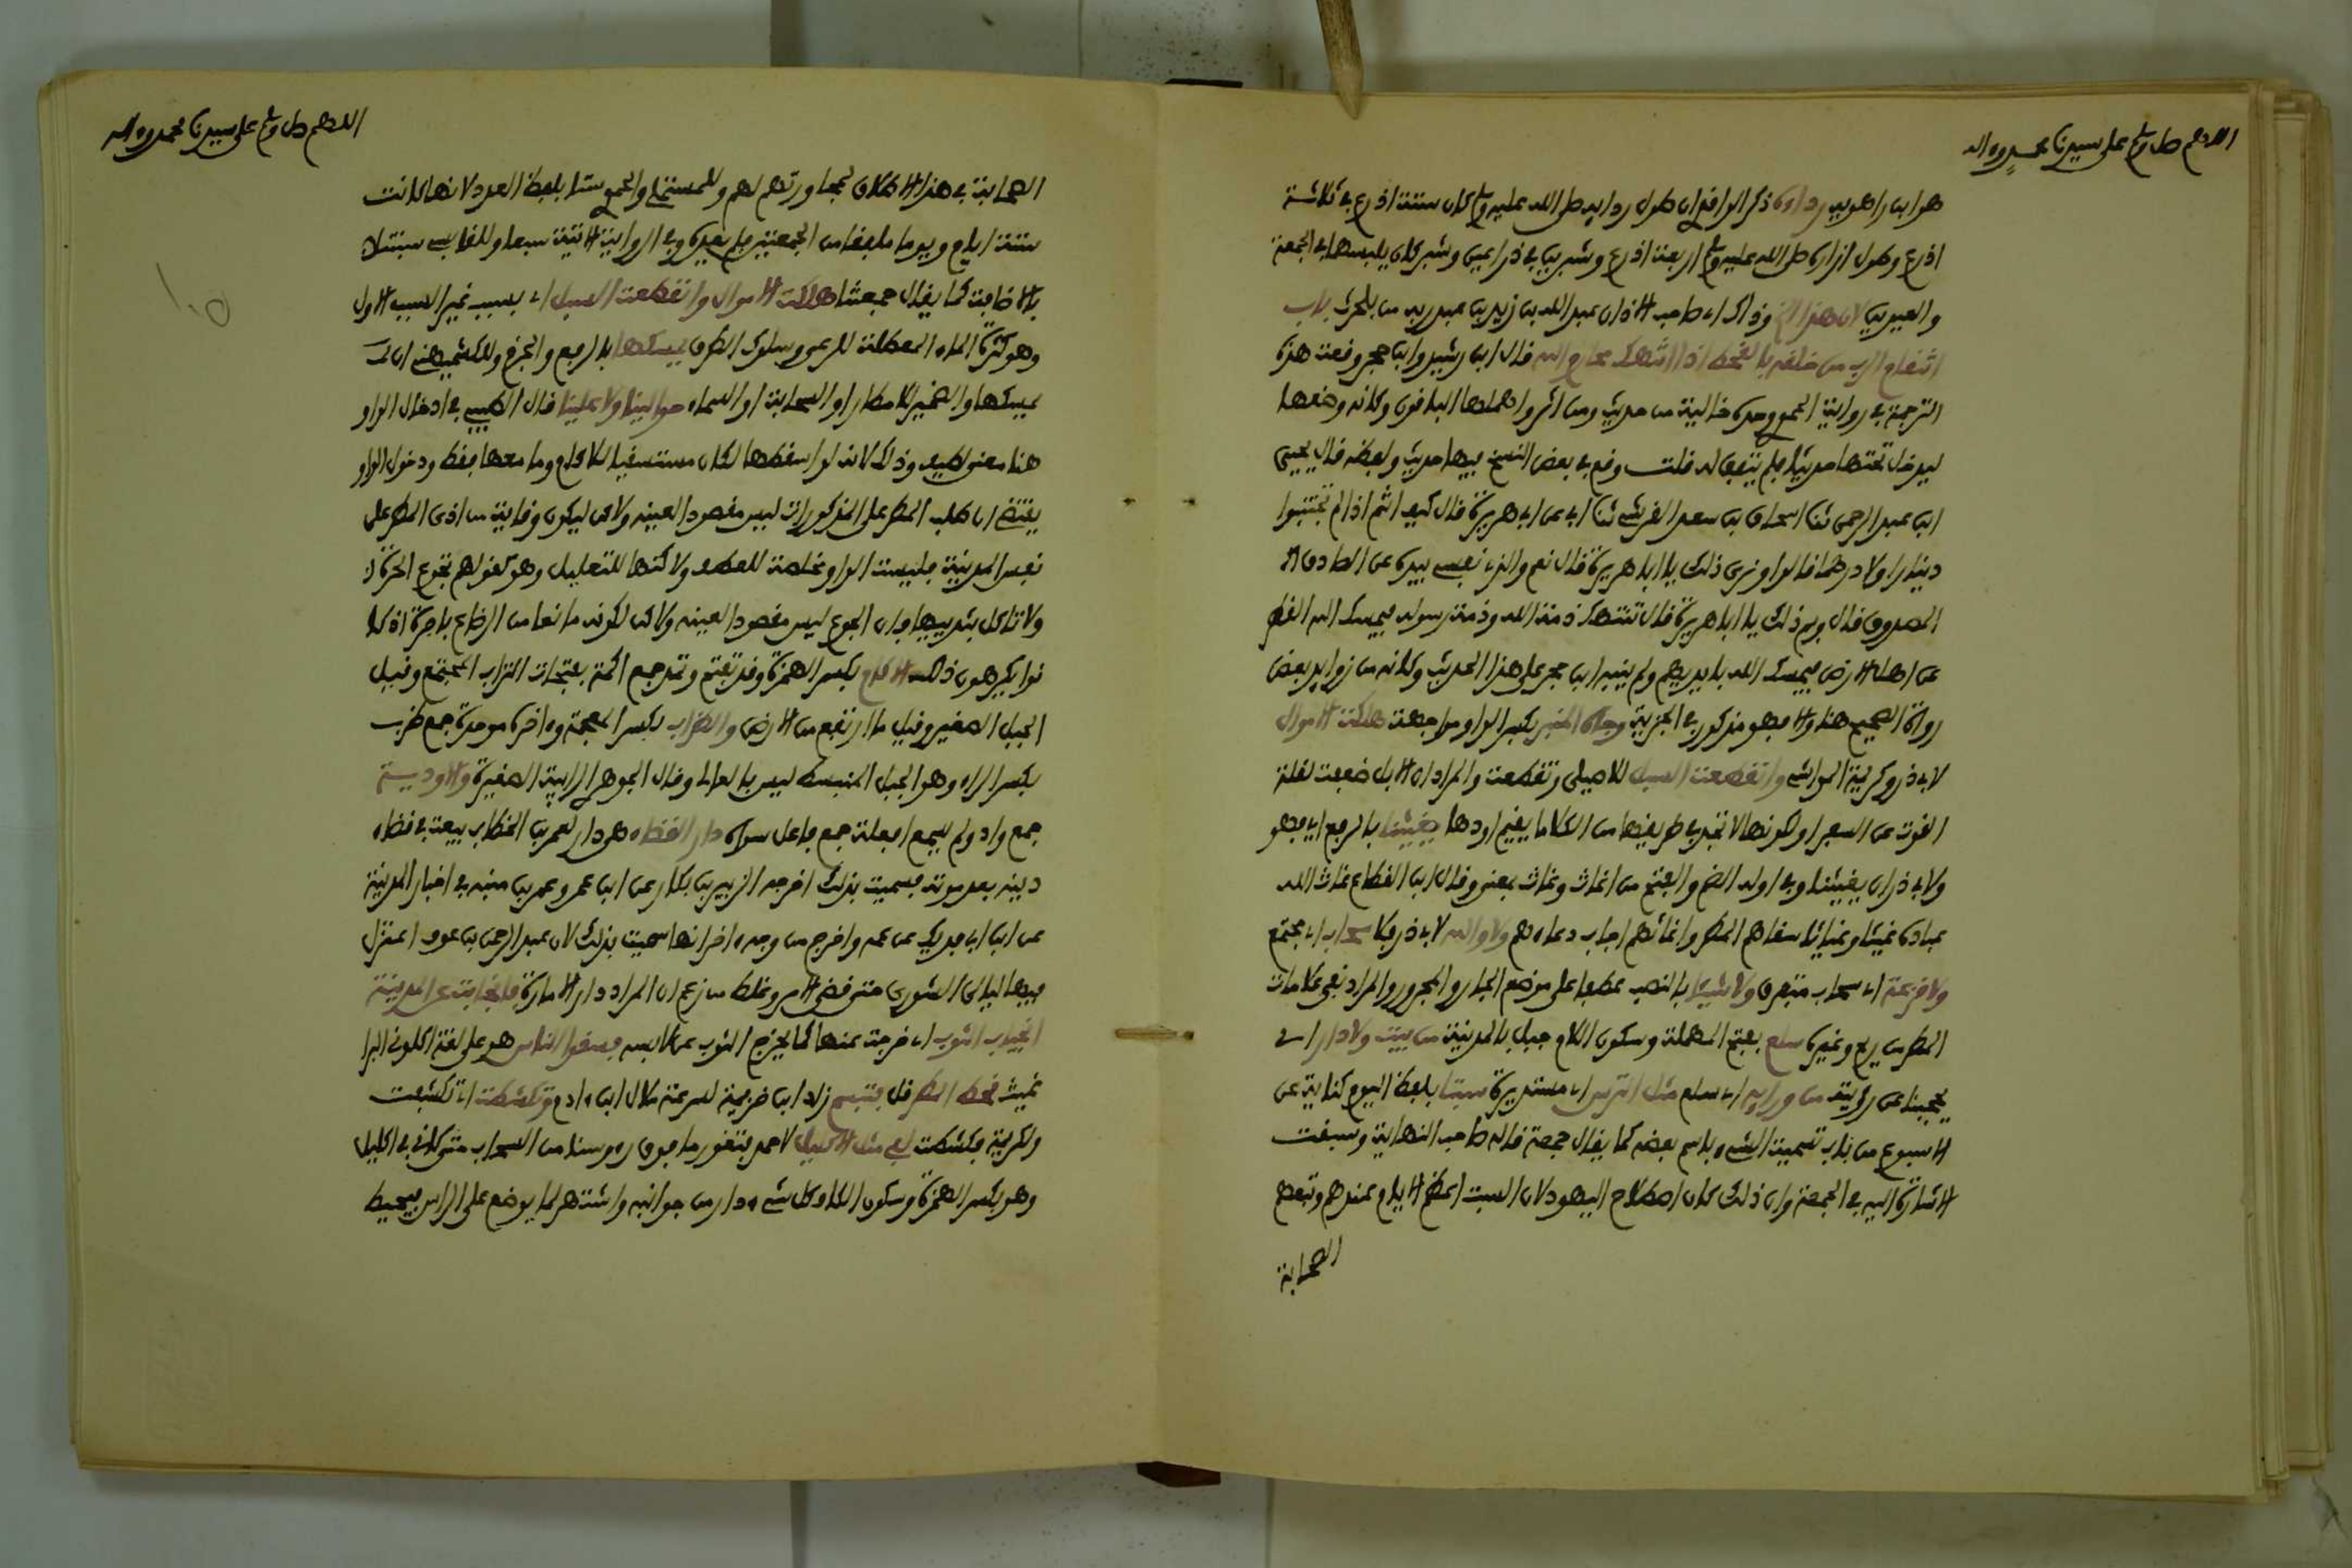 اللهم صل وسلم على سيدنا محمد وءاله
هو ابن راهويه رداءه ذكر الواقدي ان طول ردايه صلى الله عليه وسلم كان ستة اذرع في ثلاثة
اذرع وطول ازاره صلى الله عليه وسلم اربعة اذرع وشبرين في ذراعين وشبر كان يلبسهما في الجمعة
والعيدين لان هذا الخ وذاك اي صاحب الاذان عبد الله بن زيد بن عبد ربه من بلحرث باب
انتقام الرب من خلقه بالقحط اذا انتهك محارم الله قال ابن رشيد وابن حجر وقعت هذه
الترجمة في رواية الحموي وحده خالية من حديث ومن اثر واهملها الباقون وكانه وضعها
ليدخل تحتها حديثا فلم يتفق له قلت وقع في بعض النسخ فيها حديث ولفظه قال يحيى
ابن عبد الرحمن ثنا اسحاق بن سعد القرشي ثنا ابي عن ابي هريرة قال كيف انتم اذا لم تجتبوا
دينارا ولا درهما قالوا وترى ذلك يا ابا هريرة قال نعم والذي نفسي بيده عن الصادق
المصدوق قال وبم ذلك يا ابا هريرة قال تنتهك ذمة الله وذمة رسوله فيمسك الله القطر
عن اهل الارض فيمسك الله بايديهم ولم ينبه ابن حجر على هذا الحديث وكانه من زوايد بعض
رواة الصحيح هنا والا فهو مذكور في الجزية وجاه المنبر بكسر الواو مواجهة هلكت الاموال
لابي ذر وكريمة المواشي وانقطعت السبل للاصيلي وتقطعت والمراد ان الابل ضعفت لقلة
القوت عن السفر او لكونها لا تجد في طريقها من الكلا ما يقيم اودها يغيثنا بالرفع اي فهو
ولابي ذر ان يغيثنا وفي اوله الضم والفتح من اغاث وغاث بمعنى وقال ابن القطاع غاث الله
عباده غيثا وغياثا سقاهم المطر واغاثهم اجاب دعاءهم ولا والله لابي ذر فلا سحاب اي مجتمع
ولا قزعة اي سحاب متفرق ولا شيئا بالنصب عطفا على موضع الجار والمجرور والمراد نفي علامات
المطر من ريح وغيره سلع بفتح المهملة وسكون اللام جبل بالمدينة من بيت ولا دار اي
يحجبنا عن رؤيته من ورايه اي سلع مثل الترس اي مستديرة سبتا بلفظ اليوم كناية عن
الاسبوع من باب تسمية الشيء باسم بعضه كما يقال جمعة قاله صاحب النهاية وسبقت
الاشارة اليه في الجمعة وان ذلك كان اصطلاح اليهود لان السبت اعظم الايام عندهم وتبعهم
الصحابة
اللهم صل وسلم على سيدنا محمد وءاله
الصحابة في هذا الاطلاق لمجاورتهم لهم وللمستملي والحموي ستا بلفظ العدد لانها كانت
ستة ايام ويوما ملفقا من الجمعتين فلم يعده وفي الرواية الاتية سبعا وللقابسي سبتنا
بالاضافة كما يقال جمعتنا هلكت الاموال وانقطعت السبل اي بسبب غير السبب الاول
وهو كثرة الماء المعطلة للرعي وسلوك الطرق يمسكها بالرفع والجزم وللكشميهني ان
يمسكها والضمير للامطار او السحابة او السماء حوالينا ولا علينا قال الطيبي في ادخال الواو
هنا معنى لطيف وذلك لانه لو اسقطها لكان مستسقيا للاكام وما معها فقط ودخول الواو
يقتضي ان طلب المطر على المذكورات ليس مقصودا لعينه ولاكن ليكون وقاية من اذى المطر على
نفس المدينة فليست الواو مخلصة للعطف ولاكنها للتعليل وهو كقولهم تجوع الحرة
ولا تاكل بثدييها فان الجوع ليس مقصودا لعينه ولاكن لكونه مانعا من الرضاع باجرة اذ كا
نوا يكرهون ذلك الاكام بكسر الهمزة وقد تفتح وتمد جمع اكمة بفتحات التراب المجتمع وقيل
الجبل الصغير وقيل ما ارتفع من الارض والظراب بكسر المعجمة وءاخره موحدة جمع ظرب
بكسر الراء وهو الجبل المنبسط ليس بالعالي وقال الجوهري الرابية الصغيرة والاودية
جمع واد ولم يسمع افعلة جمع فاعل سواه دار القضاء هي دار لعمر بن الخطاب بيعت في قضاء
دينه بعد موته فسميت بذلك اخرجه الزبير بن بكار عن ابن عمر وعمر بن شبة في اخبار المدينة
عن ابن ابي فديك عن عمه واخرج من وجه ءاخر انها سميت بذلك لان عبد الرحمن بن عوف اعتزل
فيها ليالي الشورى حتى قضي الامر وغلط من زعم ان المراد دار الامارة فانجابت عن المدينة
انجياب الثوب اي خرجت عنها كما يخرج الثوب عن لابسه فسقوا الناس هو على لغة اكلوني البرا
غيث قحط المطر قل فتبسم زاد ابن خزيمة لسرعة ملال ابن ءادم وتكشطت اي تكشفت
ولكريمة فكشطت لفي مثل الاكليل لاحمد فتقور ما فوق رءوسنا من السحاب حتى كانا في اكليل
وهو بكسر الهمزة وسكون الكاف وكل شيء دار من جوانبه واشتهر لما يوضع على الراس فيحيط